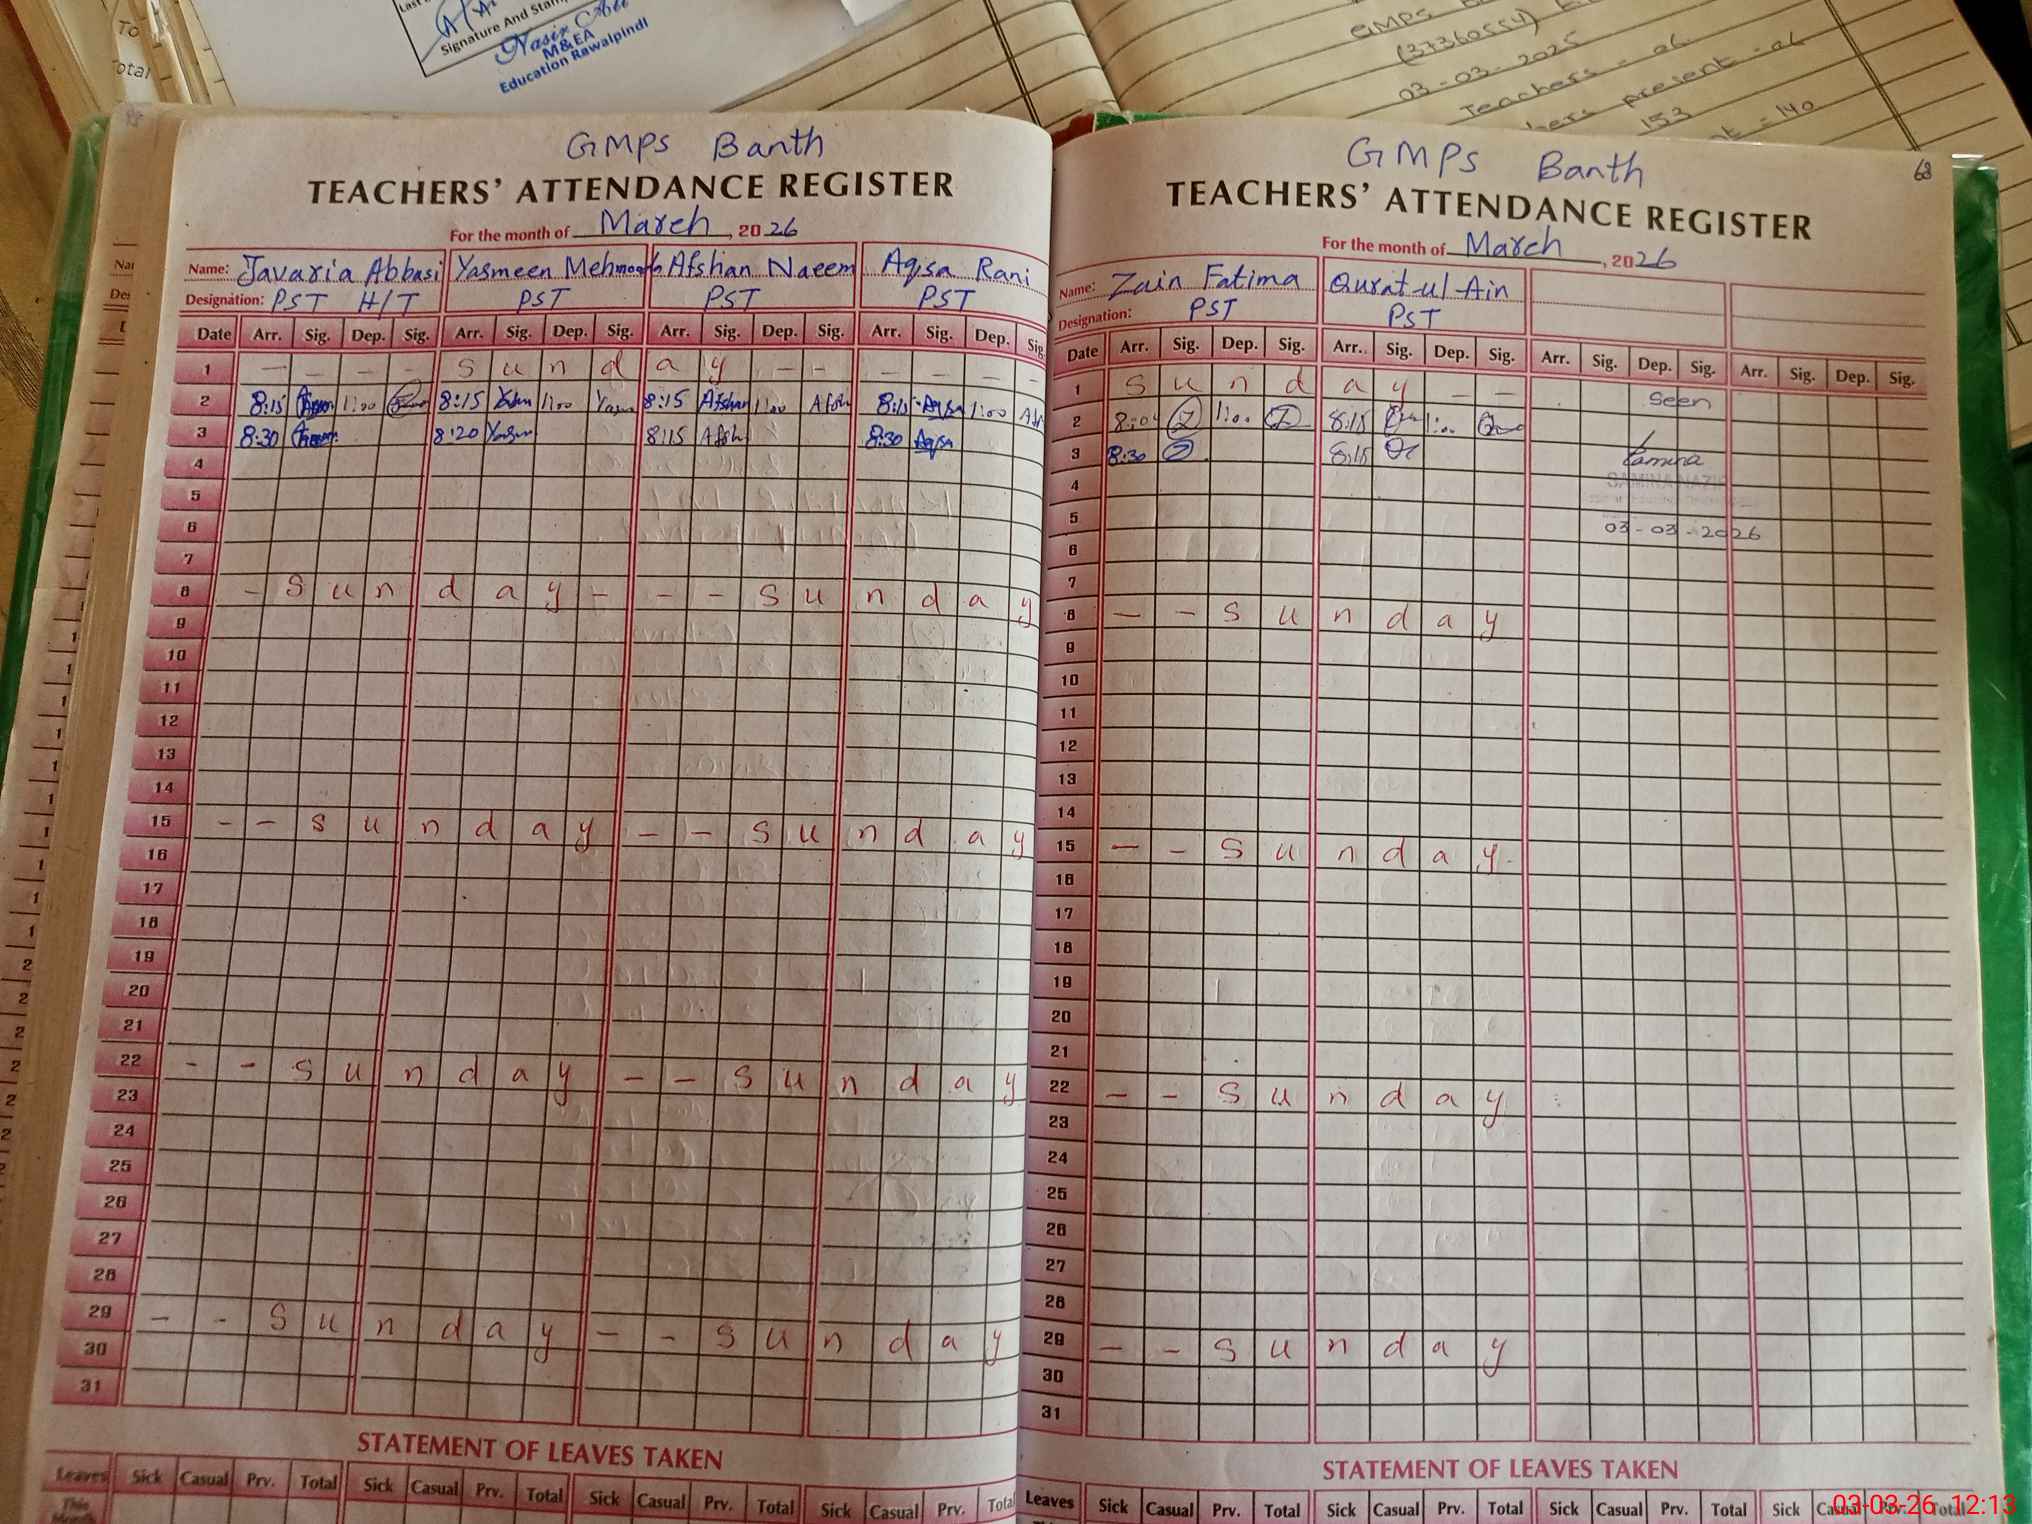 To
otal
Signature And Stam
Nasir Ali
M&EA
Education Rawalpindi
GMPS
(37360554)
03-03-2025
Teachers - 06
hers present - 06
153
nt = 140
GMPS Banth
TEACHERS' ATTENDANCE REGISTER
For the month of March, 2026
Name: Javaria Abbasi Yasmeen Mehmood Afshan Naeem Aqsa Rani
Designation: PST H/T PST PST PST
Date Arr. Sig. Dep. Sig. Arr. Sig. Dep. Sig. Arr. Sig. Dep. Sig. Arr. Sig. Dep. Sig.
1 - - - - S u n d a y - - - - - -
2 8:15 1:00 8:15 Yasm 1:00 Yasm 8:15 Afshan 1:00 Afsh 8:15 Aqsa 1:00
3 8:30 8:20 Yasm 8:15 Afsh 8:30 Aqsa
4
5
6
7
8 - S u n d a y - - - S u n d a y
9
10
11
12
13
14
15 - - S u n d a y - - S u n d a y
16
17
18
19
20
21
22 - - S u n d a y - - S u n d a y
23
24
25
26
27
28
29 - - S u n d a y - - S u n d a y
30
31
STATEMENT OF LEAVES TAKEN
Leaves Sick Casual Prv. Total Sick Casual Prv. Total Sick Casual Prv. Total Sick Casual Prv. Total
This
Month
68
GMPS Banth
TEACHERS' ATTENDANCE REGISTER
For the month of March, 2026
Name: Zain Fatima Qurat-ul-Ain
Designation: PST PST
Date Arr. Sig. Dep. Sig. Arr. Sig. Dep. Sig. Arr. Sig. Dep. Sig. Arr. Sig. Dep. Sig.
1 S u n d a y - - Seen
2 8:04 Z 1:00 Z 8:15 1:00
3 8:30 Z 8:15 Samina
4 SAMINA NAZI
5 03-03-2026
6
7
8 - - S u n d a y
9
10
11
12
13
14
15 - - S u n d a y
16
17
18
19
20
21
22 - - S u n d a y
23
24
25
26
27
28
29 - - S u n d a y
30
31
STATEMENT OF LEAVES TAKEN
Leaves Sick Casual Prv. Total Sick Casual Prv. Total Sick Casual Prv. Total Sick Casual Prv. Total
03-03-26 12:13